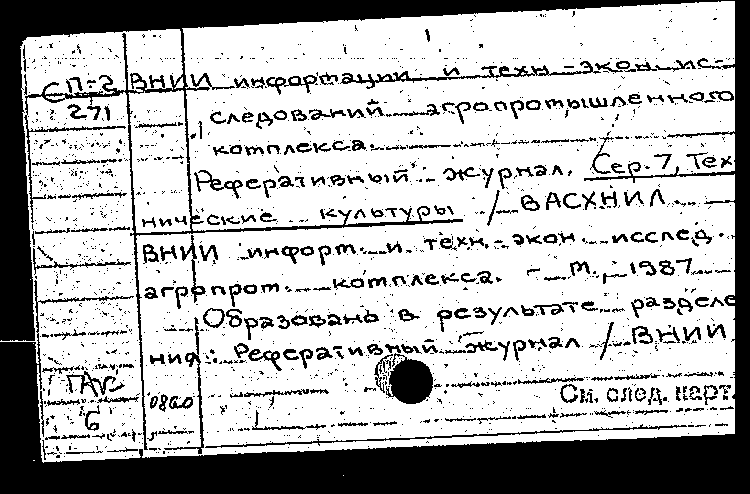 СП-2 ВНИИ информации и техн.-экон. ис-
271 следований агропромышленного
комплекса.
Реферативный журнал. Сер. 7, Тех-
нические культуры / ВАСХНИЛ
ВНИИ информ. и техн.-экон. исслед.
агропром. комплекса. - М., 1987
Образовано в результате разделе
ния: Реферативный журнал / ВНИИ
См. след. карт.
6